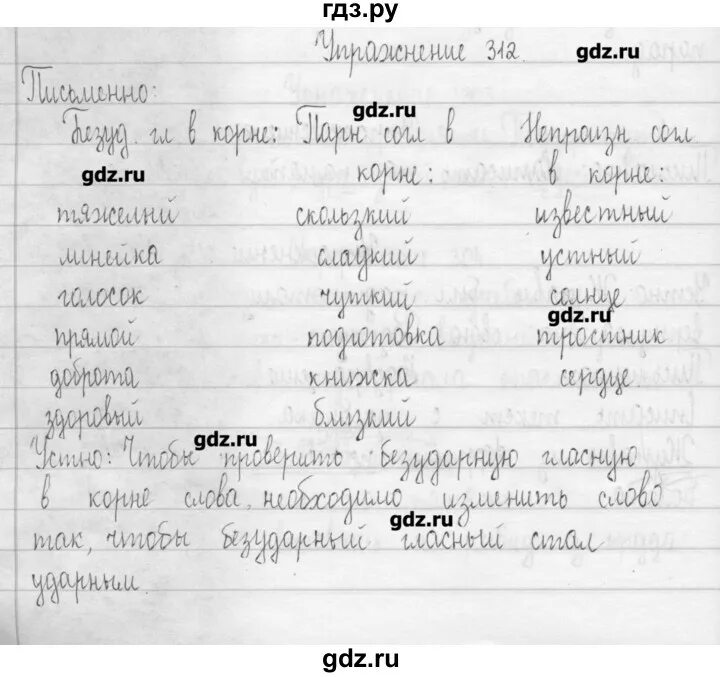 гдз.ру
Упражнение 312.
gdz.ru
Письменно:
gdz.ru
Безуд. гл в корне: Парн согл в Непроизн согл
gdz.ru
корне: в корне:
тяжелый скользкий известный
линейка сладкий устный
голосок чуткий солнце
gdz.ru
прямой подготовка тростник
доброта книжка сердце
здоровый близкий
gdz.ru
Устно: Чтобы проверить безударную гласную
в корне слова, необходимо изменить слово
gdz.ru
так, чтобы безударный гласный стал
ударным.
gdz.ru